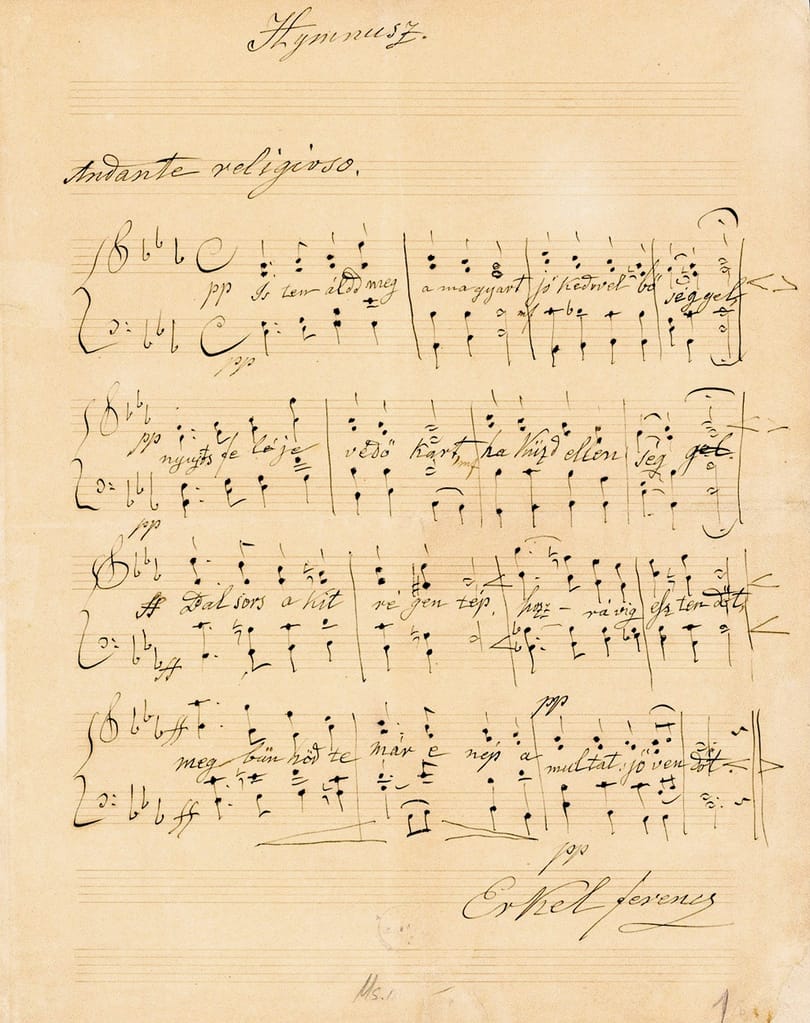 Hymnusz.
Andante religioso.
pp Is ten áldd meg a magyart jó kedvel bő séggel,
mf
pp
pp nyujts fe léje védő kart mf ha küzd ellen ség gel.
pp
ff Bal sors a kit ré gen tép, hozz – rá víg esz ten dőt,
ff
pp
ff meg bün hőd te már e nép a multat jö ven dőt.
ff
pp
Erkel ferencz
Ms.
1